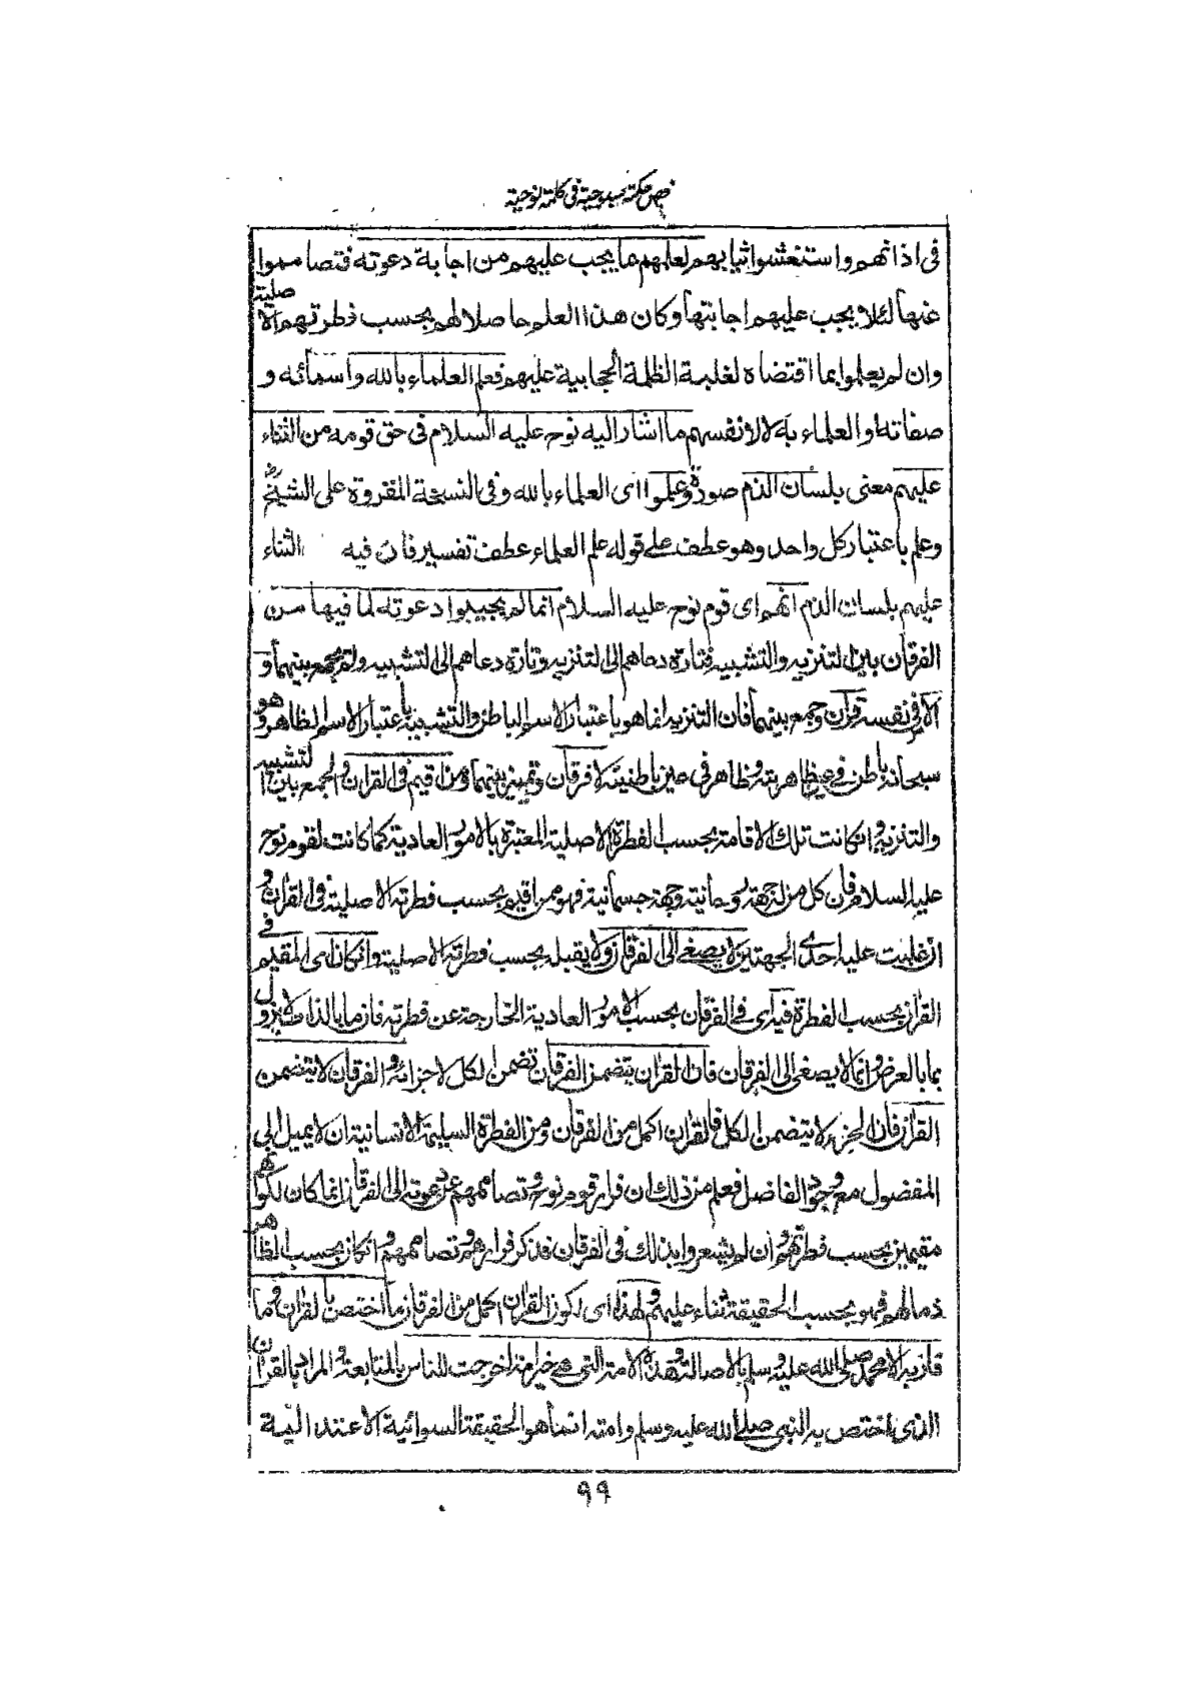 فص حكمة سبوحية فى كلمة نوحية
فى اذانهم واستغشوا ثيابهم لعلمهم بما يجب عليهم من اجابة دعوته فتصامموا
عنها لئلا يجب عليهم اجابتها وكان هذا العلم حاصلا لهم بحسب فطرتهم الاصلية
وان لم يعلموا بما اقتضاه لغلبة الظلمة الحجابية عليهم فعلم العلماء بالله واسمائه و
صفاته او العلماء به لا لانفسهم ما اشار اليه نوح عليه السلام فى حق قومه من الثناء
عليهم معنى بلسان الذم صورة وعلموا اى العلماء بالله وفى النسخة المقروة على الشيخ رض
وعلم باعتبار كل واحد وهو عطف على قوله علم العلماء عطف تفسير فان فيه الثناء
عليهم بلسان الذم انهم اى قوم نوح عليه السلام انما لم يجيبوا دعوته لما فيها من
الفرقان بين التنزيه والتشبيه فتارة دعاهم الى التنزيه وتارة دعاهم الى التشبيه ولم يجمع بينهما و
الامر فى نفسه قرآن وجمع بينهما فان التنزيه انما هو باعتبار الاسم الباطن والتشبيه باعتبار الاسم الظاهر وهو
سبحانه باطن فى عين ظاهريته وظاهر فى عين باطنيته لا فرقان وتميز بينهما ومن اقيم فى القرآن والجمع بين التشبيه
والتنزيه وان كانت تلك الاقامة بحسب الفطرة الاصلية المعتبرة بالامور العادية كما كانت لقوم نوح
عليه السلام فان كل من له جهة روحانية وجهة جسمانية فهو من اقيم بحسب فطرته الاصلية فى القرآن و
ان غلبت عليه احدى الجهتين لا يصغى الى الفرقان ولا يقبله بحسب فطرته الاصلية وان كان اى المقيم فى
القرآن بحسب الفطرة فيه اى فى الفرقان بحسب الامور العادية الخارجة عن فطرته فان ما بالذات لا يزول
بما بالعرض وانما لا يصغى الى الفرقان فان القرآن يتضمن الفرقان تضمن الكل لاجزائه والفرقان لا يتضمن
القرآن فان الجزء لا يتضمن الكل فالقرآن اكمل من الفرقان ومن الفطرة السليمة الانسانية ان لا يميل الى
المفضول مع وجود الفاضل فعلم من ذلك ان فرار قوم نوح وتصاممهم عن دعوته الى الفرقان انما كان لكونهم
مقيمين بحسب فطرتهم وان لم يشعروا بذلك فى الفرقان فذكر فرارهم وتصاممهم وان كان بحسب الظاهر
ذما لهم فهو بحسب الحقيقة ثناء عليهم ولهذا اى لكون القرآن اكمل من الفرقان ما اختص بالقرآن وما
فاز به الا محمد صلى الله عليه وسلم بالاصالة وهذه الامة التى هى خير امة اخرجت للناس بالمتابعة والمراد بالقرآن
الذى اختص به النبى صلى الله عليه وسلم وامته انما هو الحقيقة السوائية الاعتدالية
٩٩